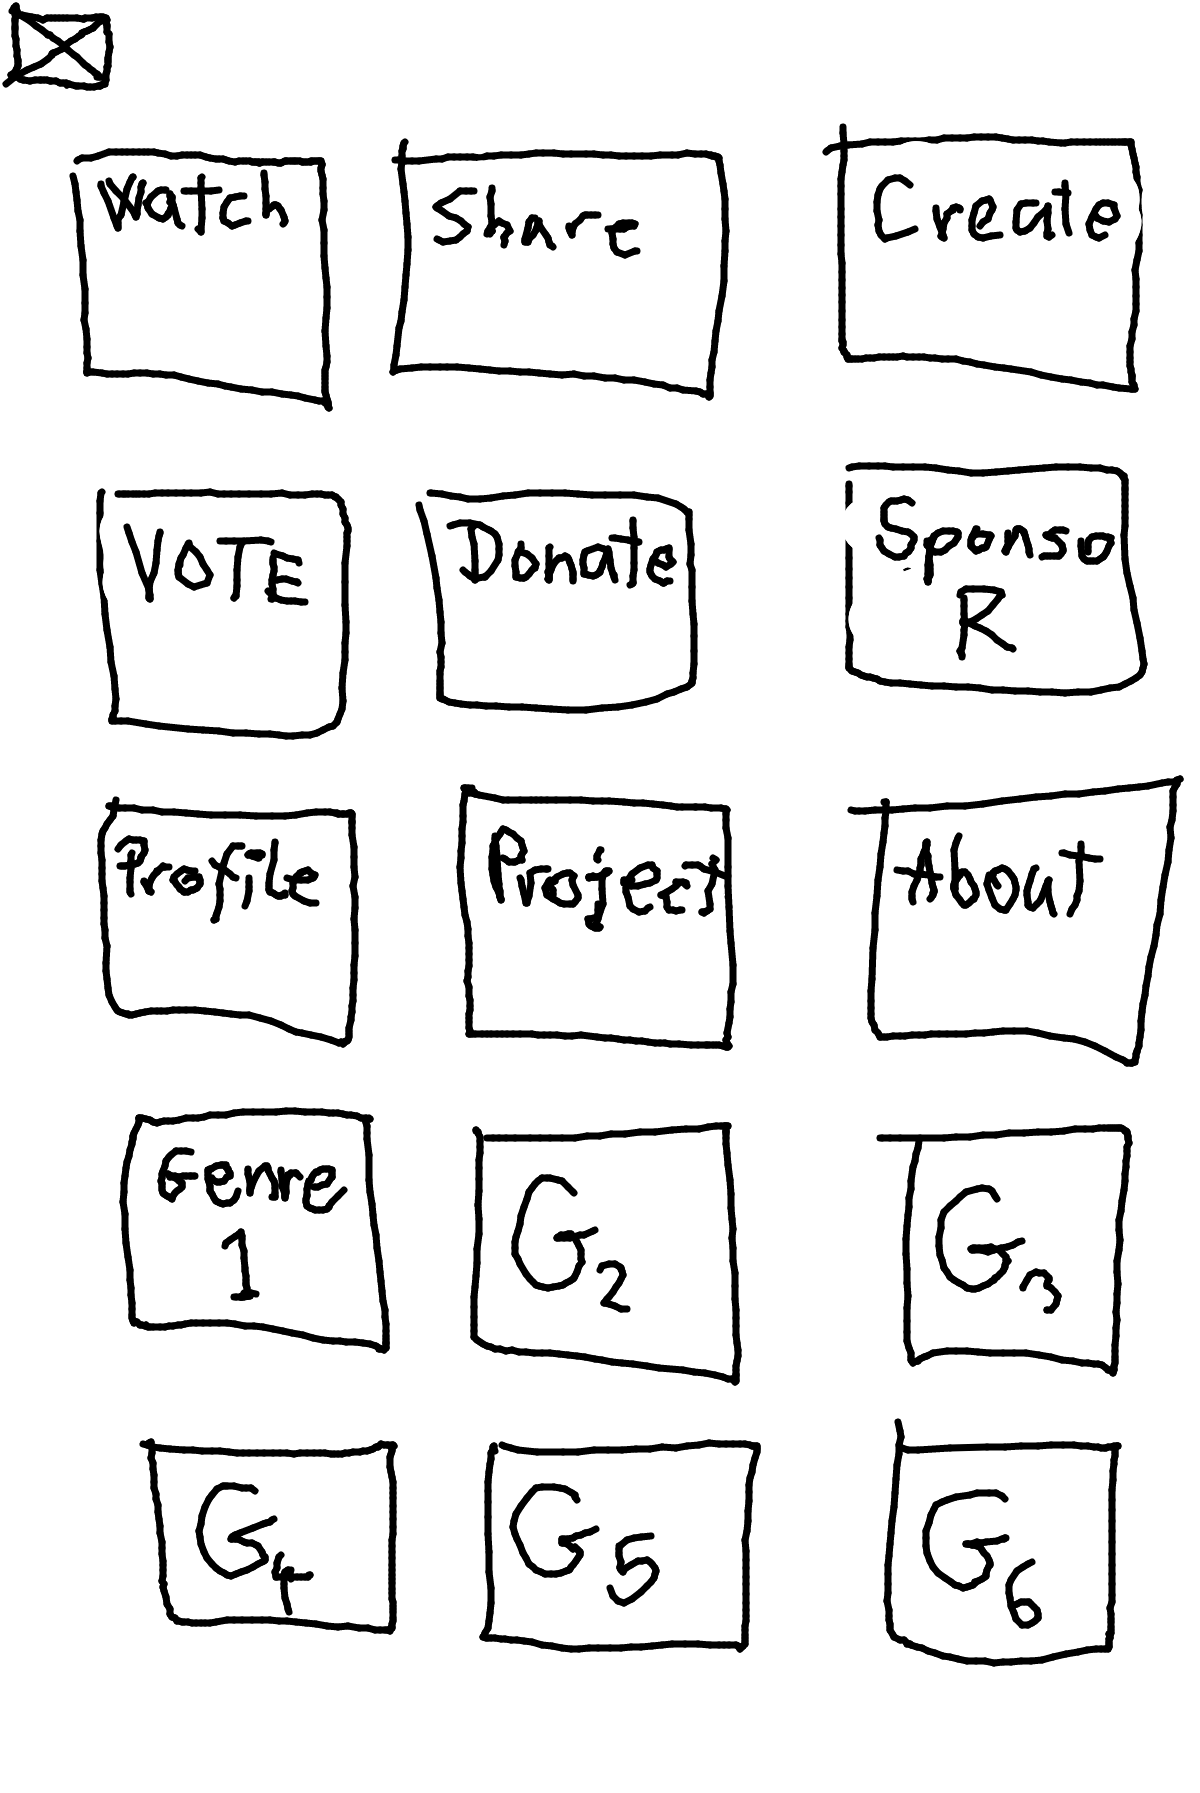 Watch
Share
Create
VOTE
Donate
Sponso
R
Profile
Project
About
Genre
1
G2
G3
G4
G5
G6